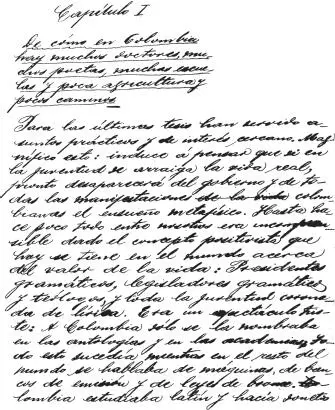 Capítulo I
De cómo en Colombia
hay muchos doctores, mu-
chos poetas, muchas escue-
las y poca agricultura y
pocos caminos
Para las últimas tesis han servido a-
suntos prácticos y de interés cercano. Mag-
nífico esto: induce a pensar que si en
la juventud se arraiga la vida real,
pronto desaparecerá del gobierno y de to-
das las manifestaciones de la vida colom-
bianas el ensueño metafísico. Hasta ha-
ce poco todo entre nosotros era incompren-
sible dado el concepto positivista que
hoy se tiene en el mundo acerca
del valor de la vida: Presidentes
gramáticos, legisladores gramáticos
y teólogos, y toda la juventud corona-
da de lírica. Era un espectáculo tris-
te: A Colombia sólo se la nombraba
en las antologías y en las academias, to-
do esto sucedía mientras en el resto del
mundo se hablaba de máquinas, de ban-
cos de emisión y de leyes de bronce. Co-
lombia estudiaba latín y hacía sonetos